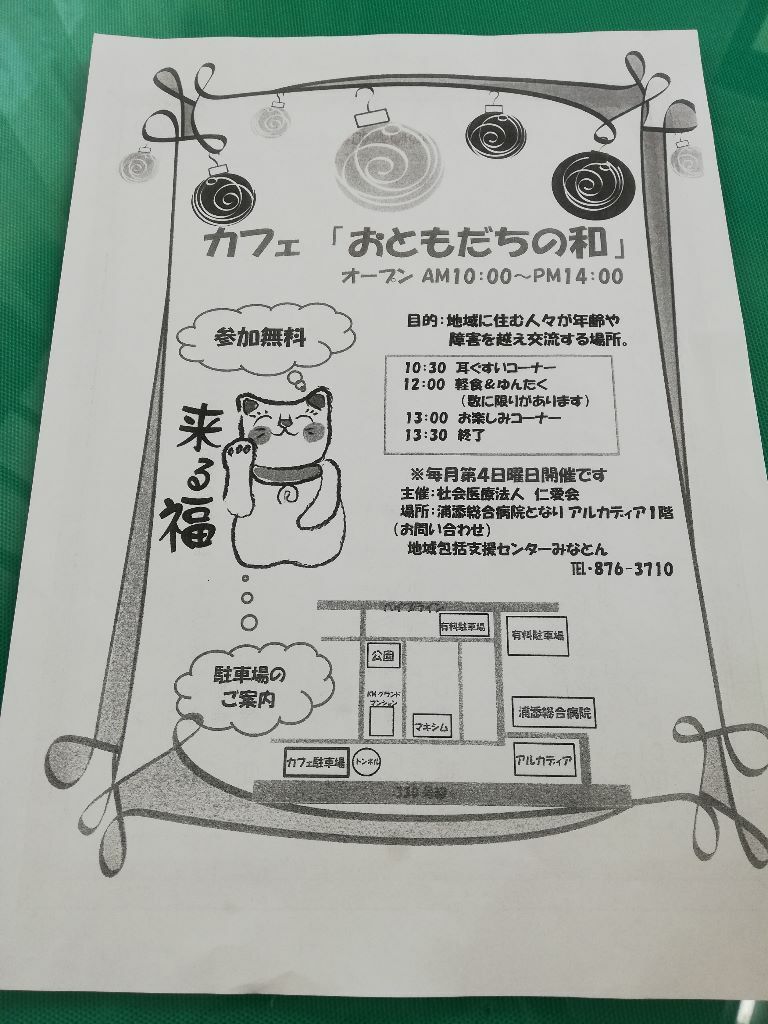 カフェ 「おともだちの和」
オープン AM10:00～PM14:00
参加無料
目的:地域に住む人々が年齢や
障害を越え交流する場所。
10:30 耳ぐすいコーナー
12:00 軽食&ゆんたく
(数に限りがあります)
13:00 お楽しみコーナー
13:30 終了
来る福
※毎月第4日曜日開催です
主催:社会医療法人 仁愛会
場所:浦添総合病院となり アルカディア1階
(お問い合わせ)
地域包括支援センターみなとん
TEL・876-3710
駐車場の
ご案内
パイプライン
有料駐車場
有料駐車場
公園
KMグランド
マンション
マキシム
浦添総合病院
カフェ駐車場
トンネル
アルカディア